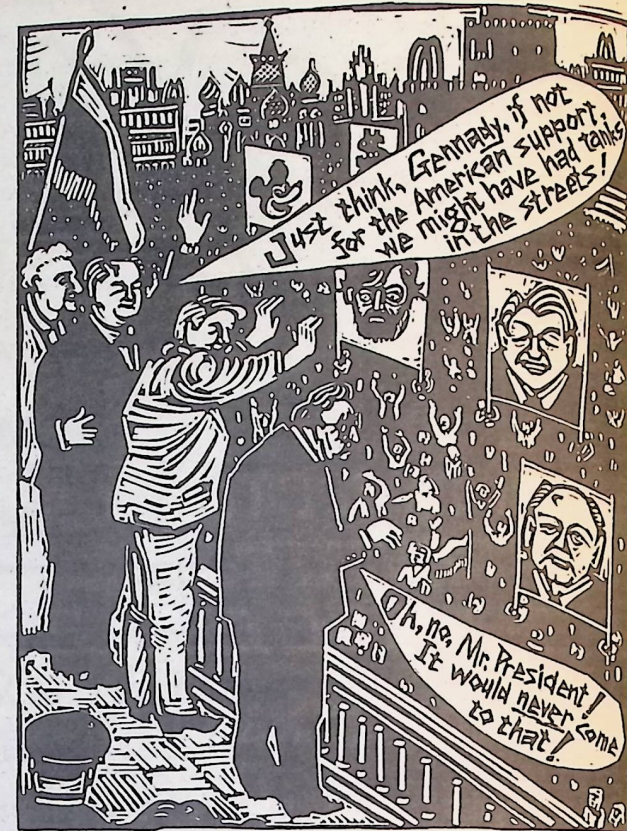 Just think, Gennady, if not
for the American support,
we might have had tanks
in the streets!
Oh, no, Mr. President!
It would never come
to that!